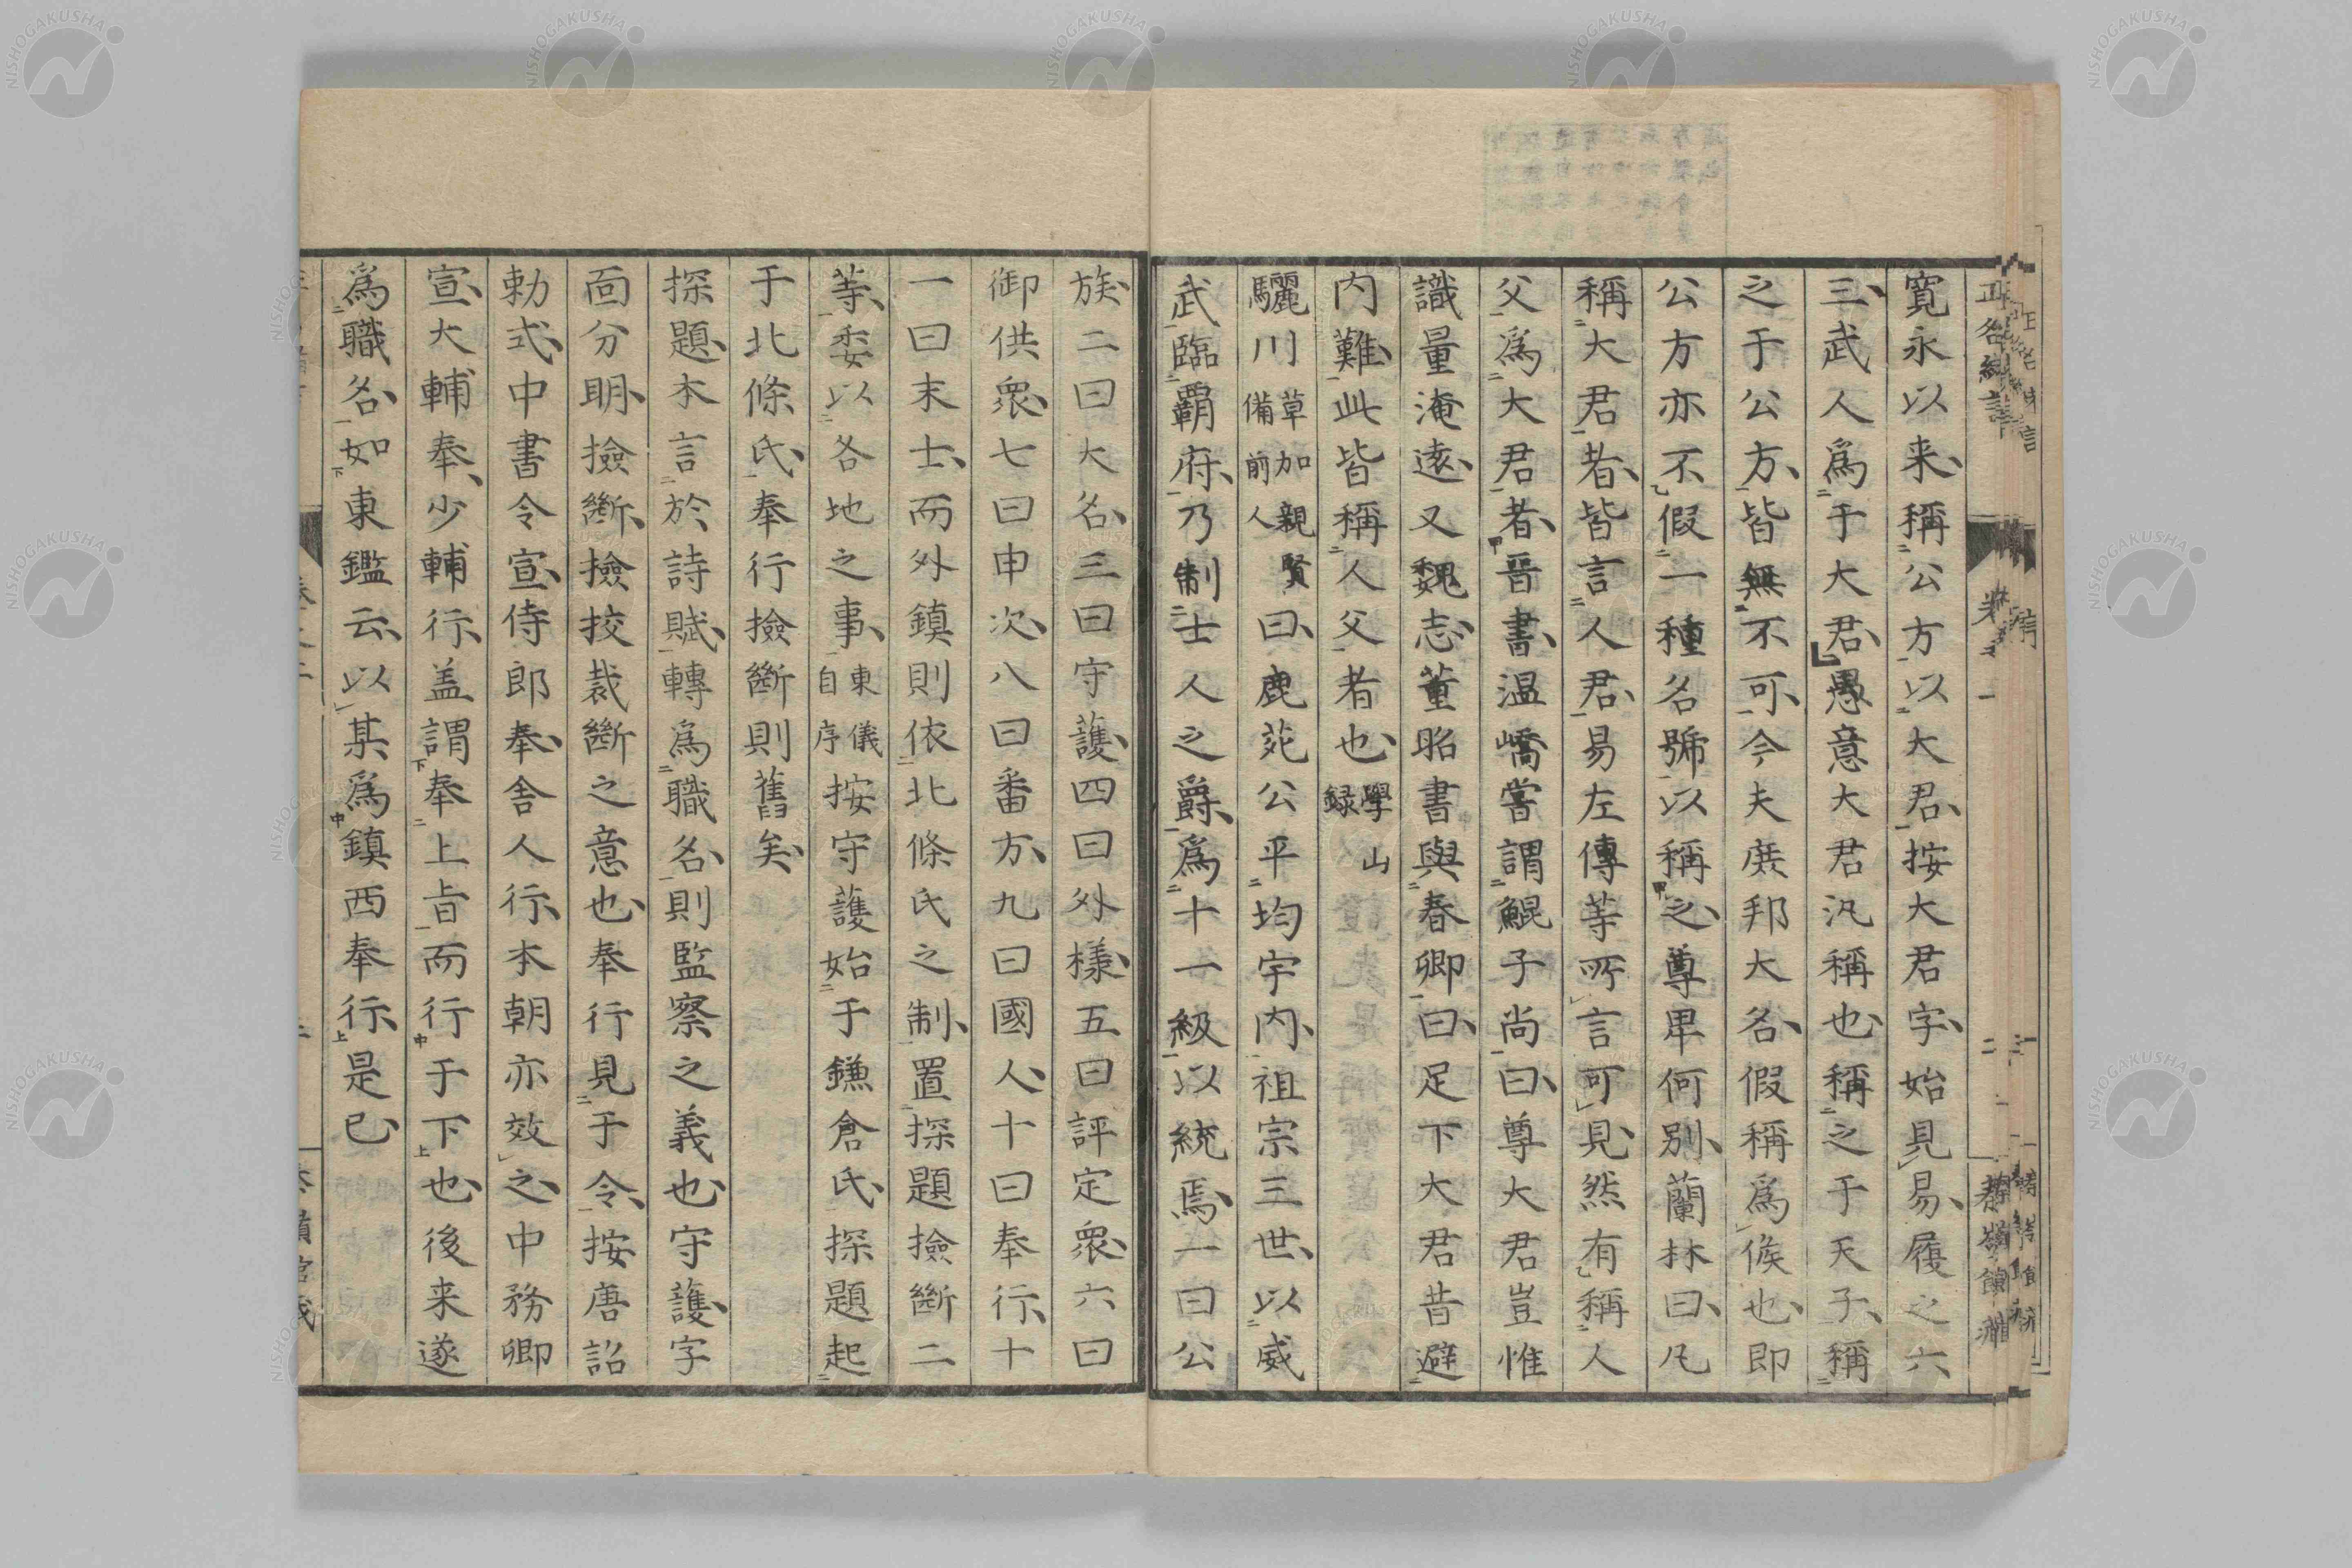 寛永以来、稱公方以大君、按大君字、始見易、履之六
三、武人爲于大君、愚意大君汎稱也、稱之于天子、稱
之于公方、皆無不可、今夫庻邦大名、假稱爲侯也、即
公方亦不假一種名號以稱之、尊卑何別、蘭林曰、凡
稱大君者、皆言人君、易左傳等所言可見、然有稱人
父爲大君者、晋書、温嶠嘗謂鯤子尚曰、尊大君豈惟
識量淹遠、又魏志、董昭書與春卿曰、足下大君昔避
内難、此皆稱人父者也、學山録
驪川草加親賢備前人曰、鹿苑公平均宇内、祖宗三世、以威
武臨覇府、乃制士人之爵、爲十一級以統焉、一曰公
族、二曰大名、三曰守護、四曰外様、五曰評定衆、六曰
御供衆、七曰申次、八曰番方、九曰國人、十曰奉行、十
一曰末士、而外鎮則依北條氏之制、置探題撿斷二
等、委以各地之事、東儀自序按守護始于鎌倉氏、探題起
于北條氏、奉行撿斷則舊矣、
探題、本言於詩賦、轉爲職名、則監察之義也、守護、字
靣分明、撿斷、撿挍裁斷之意也、奉行見于令、按唐詔
勅式、中書令宣、侍郎奉、舎人行、本朝亦效之、中務卿
宣、大輔奉、少輔行、盖謂奉上旨而行于下也、後来遂
爲職名、如東鑑云、以某爲鎮西奉行、是已